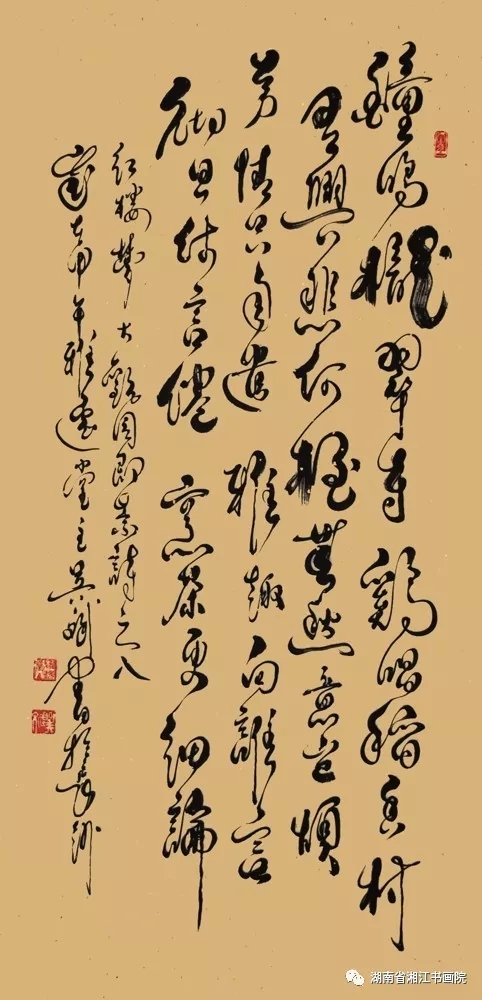 鐘鳴櫳翠寺鷄唱稻香村
有興悲何極無愁意豈煩
芳情只自遣雅趣向誰言
徹旦休言倦烹茶更細論
红樓夢大觀園即景詩之八
歲年雅堂主吴書於長沙
湖南省湘江书画院